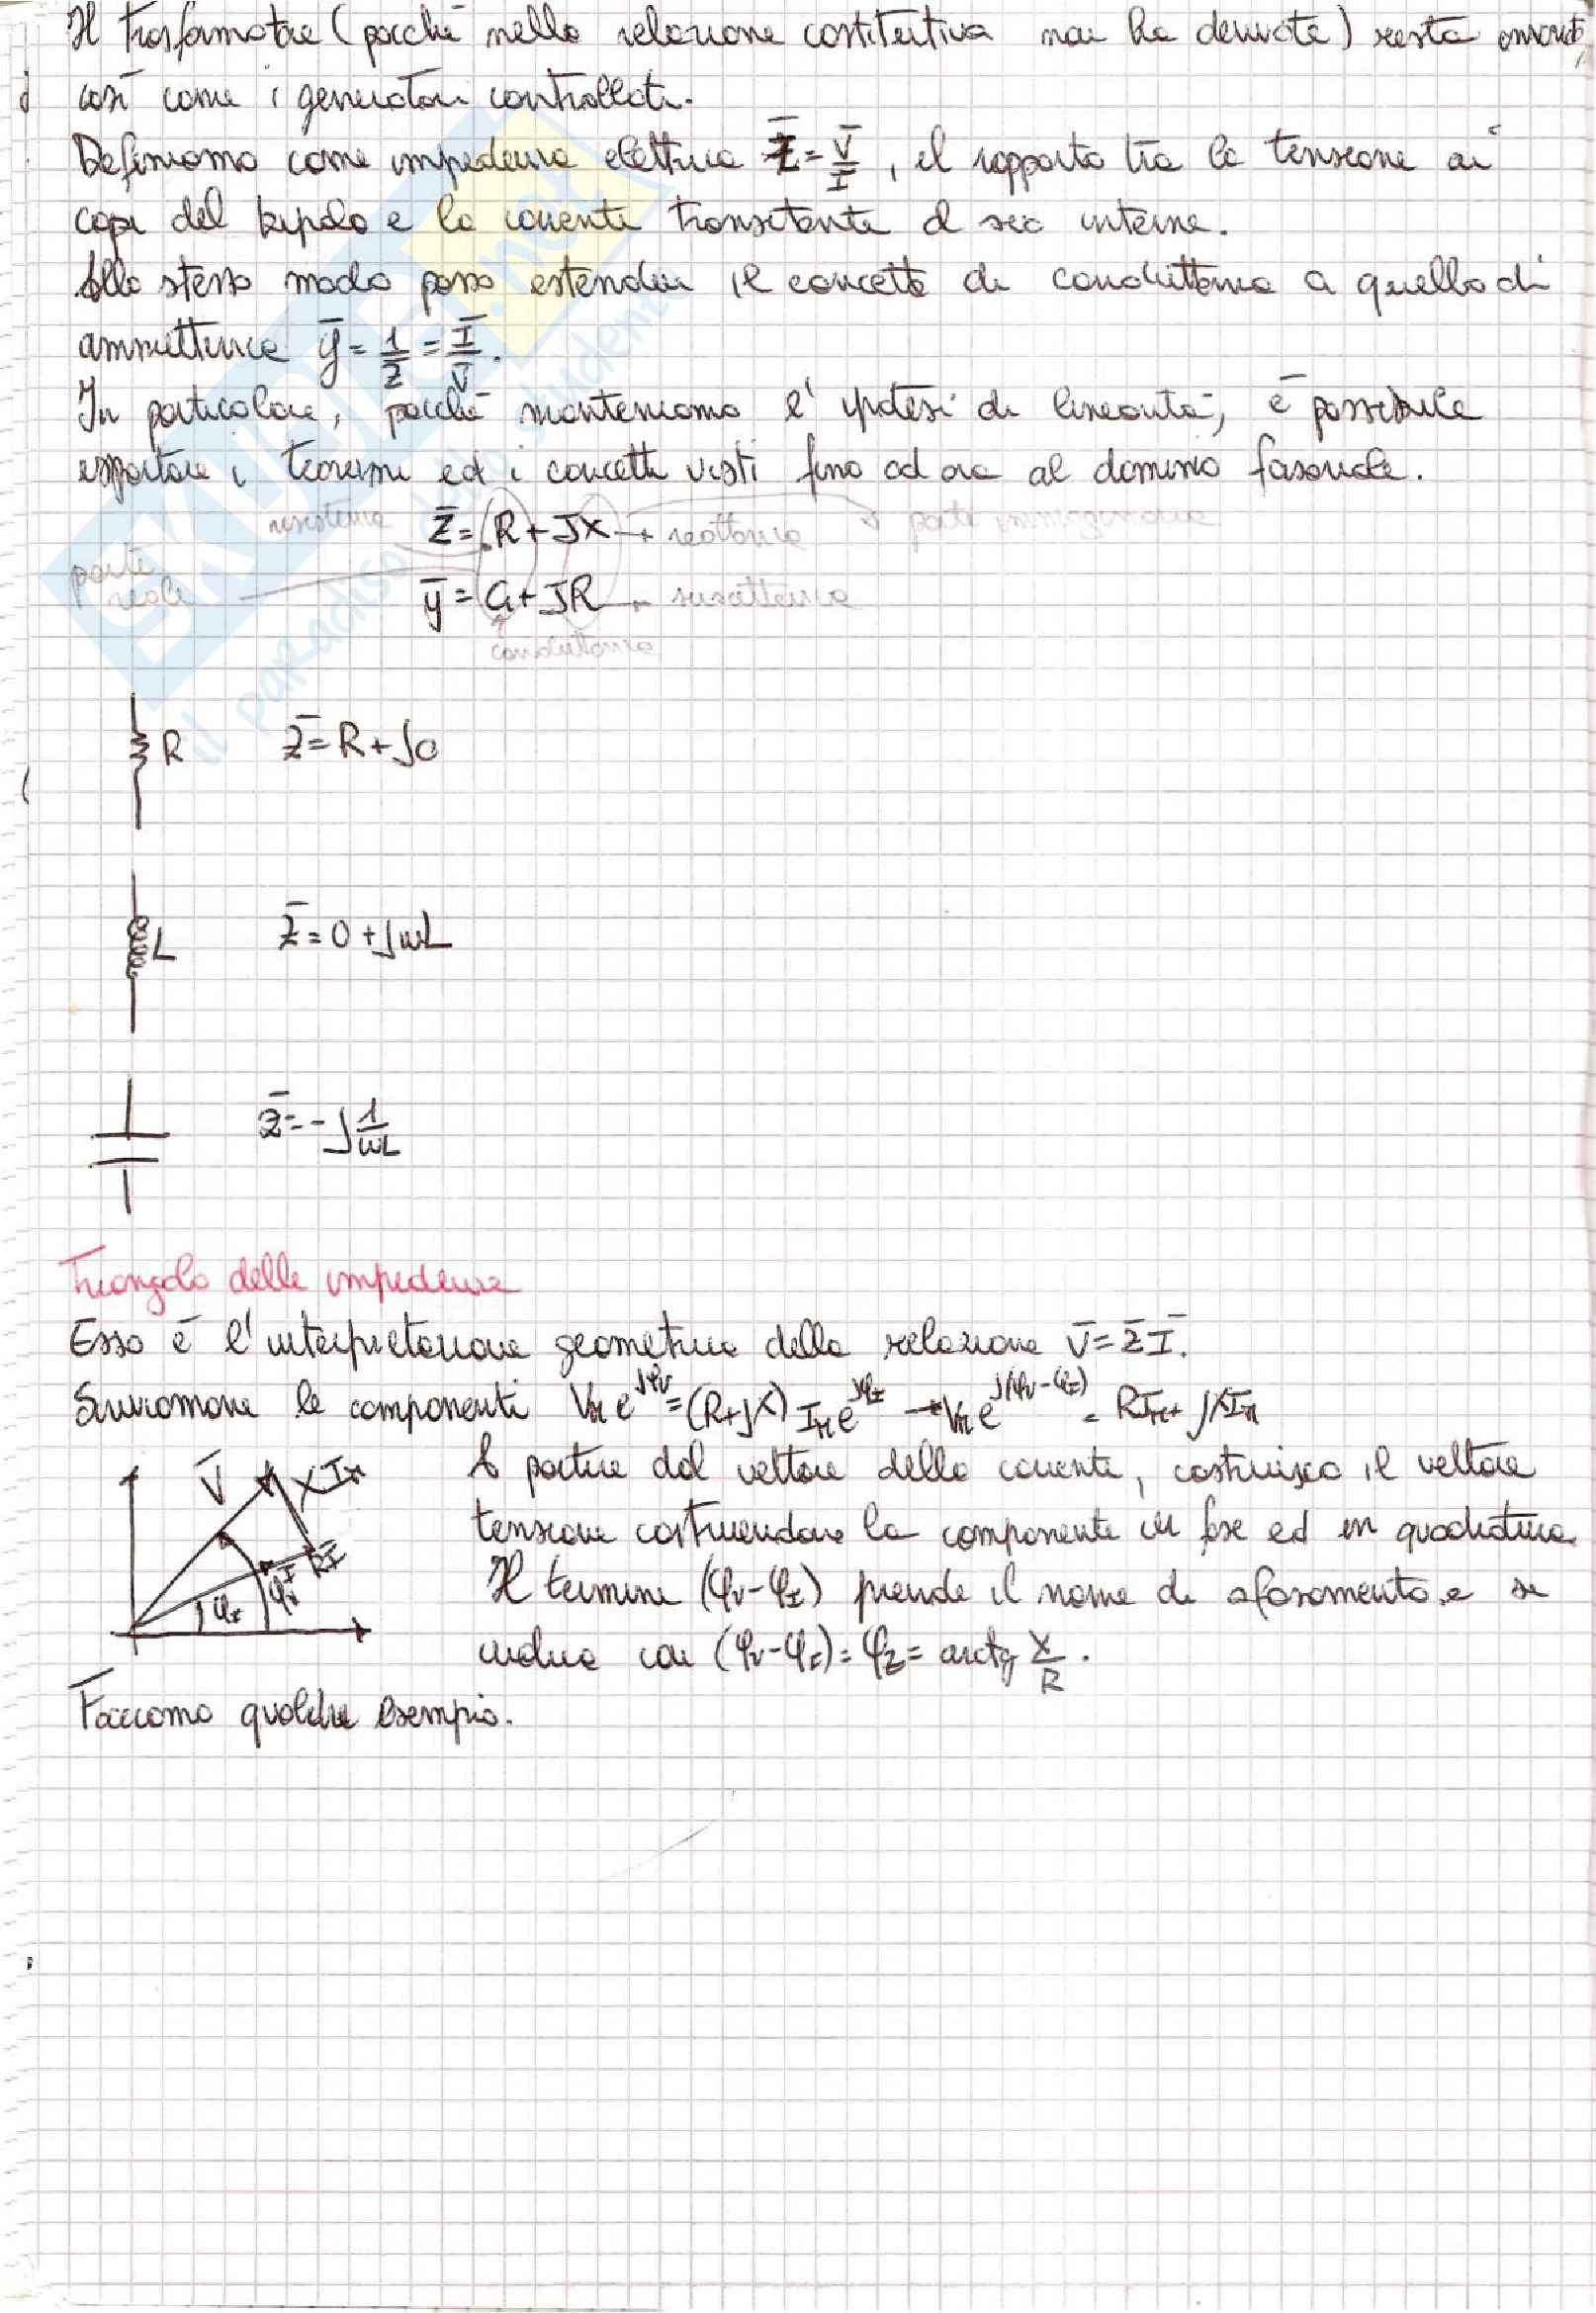 Il trasformatore (poiché nella relazione costitutiva non ha derivate) resta
così come i generatori controllati.
Definiamo come impedenza elettrica Z̄ = V̄/Ī, il rapporto tra la tensione ai
capi del bipolo e la corrente transitante al suo interno.
Allo stesso modo posso estendere il concetto di conduttanza a quello di
ammettenza ȳ = 1/Z̄ = Ī/V̄.
In particolare, poiché manteniamo l'ipotesi di linearità, è possibile
esportare i teoremi ed i concetti visti fino ad ora al dominio fasoriale.
resistenza Z̄ = R + JX → reattanza parte immaginaria
parte reale ȳ = G + JB → suscettanza
conduttanza
R Z̄ = R + J0
L Z̄ = 0 + JωL
Z̄ = -J 1/ωL
Triangolo delle impedenze
Esso è l'interpretazione geometrica della relazione V̄ = Z̄ Ī.
Scriviamone le componenti V_M e^{jφ_V} = (R+jX) I_M e^{jφ_I} → V_M e^{j(φ_V-φ_I)} = R I_M + jX I_M
V̄ X I_M A partire dal vettore della corrente, costruisco il vettore
tensione costruendone la componente in fase ed in quadratura.
φ_I φ_V Ī RI Il termine (φ_V-φ_I) prende il nome di sfasamento e si
indica con (φ_V-φ_I) = φ_Z = arctg X/R.
Facciamo qualche esempio.
SKUOLA.net
il paradiso dello studente